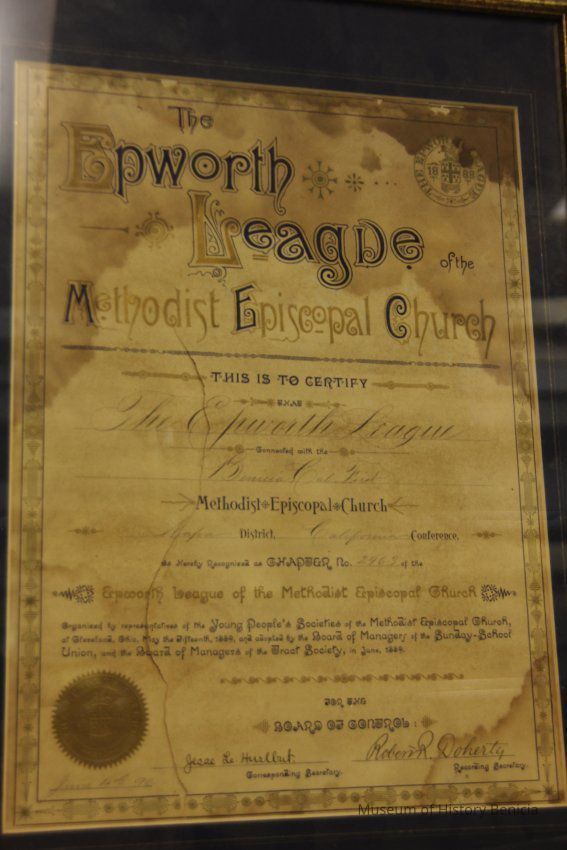 The
Epworth
League
of the
Methodist Episcopal Church
THE EPWORTH LEAGUE
1889
THIS IS TO CERTIFY
THAT
The Epworth League
Connected with the
Benicia Cal First
Methodist Episcopal Church
Napa District, California Conference,
is Hereby Recognized as CHAPTER No. of the
Epworth League of the Methodist Episcopal Church
Organized by representatives of the Young People's Societies of the Methodist Episcopal Church,
at Cleveland, Ohio, May the Fifteenth, 1889, and adopted by the Board of Managers of the Sunday-School
Union, and the Board of Managers of the Tract Society, in June, 1889.
FOR THE
BOARD OF CONTROL:
Jesse L. Hurlbut
Corresponding Secretary.
Robert R. Doherty
Recording Secretary.
Museum of History Benicia